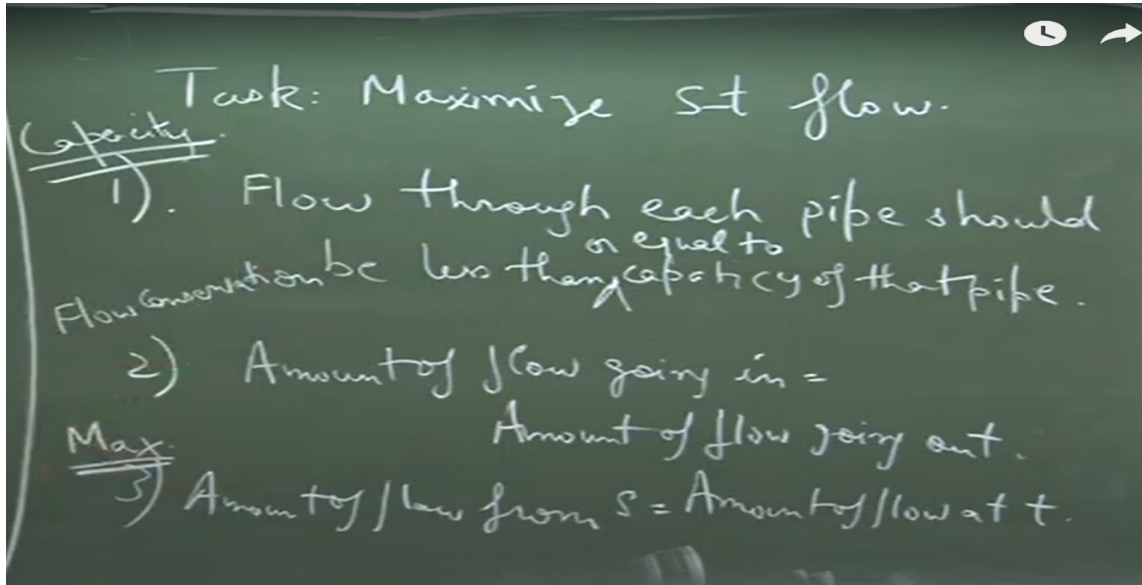 Task: Maximize s-t flow.
Capacity.
1). Flow through each pipe should
or equal to
be less than capaticy of that pipe.
Flow Conservation
2) Amount of flow going in =
Amount of flow going out.
Max.
3) Amount of flow from s = Amount of flow at t.